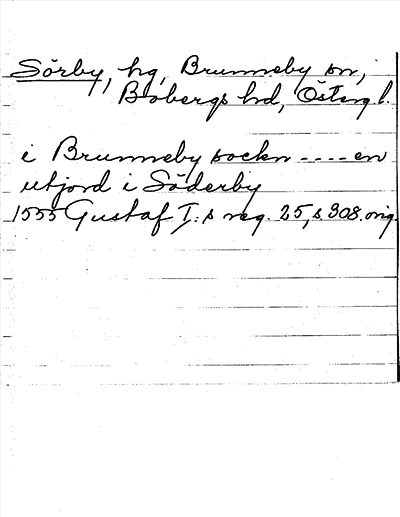 Sörby, hg, Brunneby sn,
Bobergs hd, Österg l.
i Brunneby sockn ---- en
utjord i Söderby
1555 Gustaf I:s reg. 25, s 308. orig.